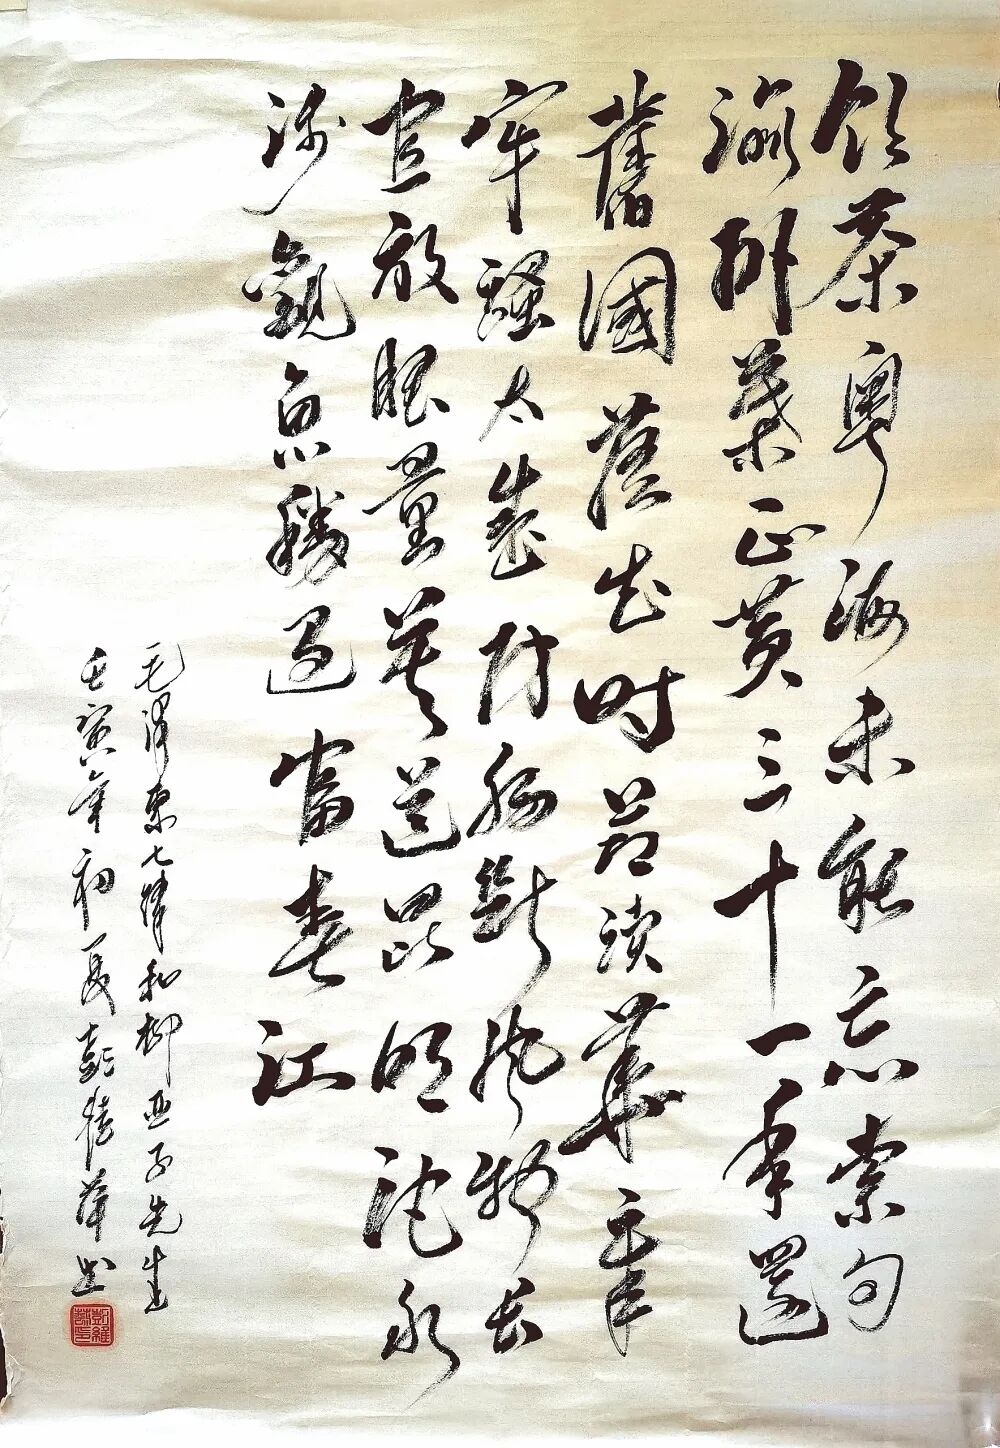 飲茶粤海未能忘索句
渝州葉正黄三十一年還
舊國落花时節读華章
牢騷太盛防腸斷風物長
宜放眼量莫道昆明池水
淺觀魚勝過富春江
毛澤東七律和柳亞子先生
壬寅年初夏彭維书